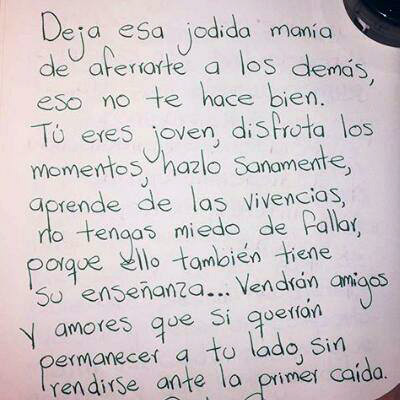 Deja esa jodida manía
de aferrarte a los demás,
eso no te hace bien.
Tú eres joven, disfruta los
momentos, hazlo sanamente,
aprende de las vivencias,
no tengas miedo de fallar,
porque ello también tiene
su enseñanza... Vendrán amigos
y amores que si querrán
permanecer a tu lado, sin
rendirse ante la primer caída.